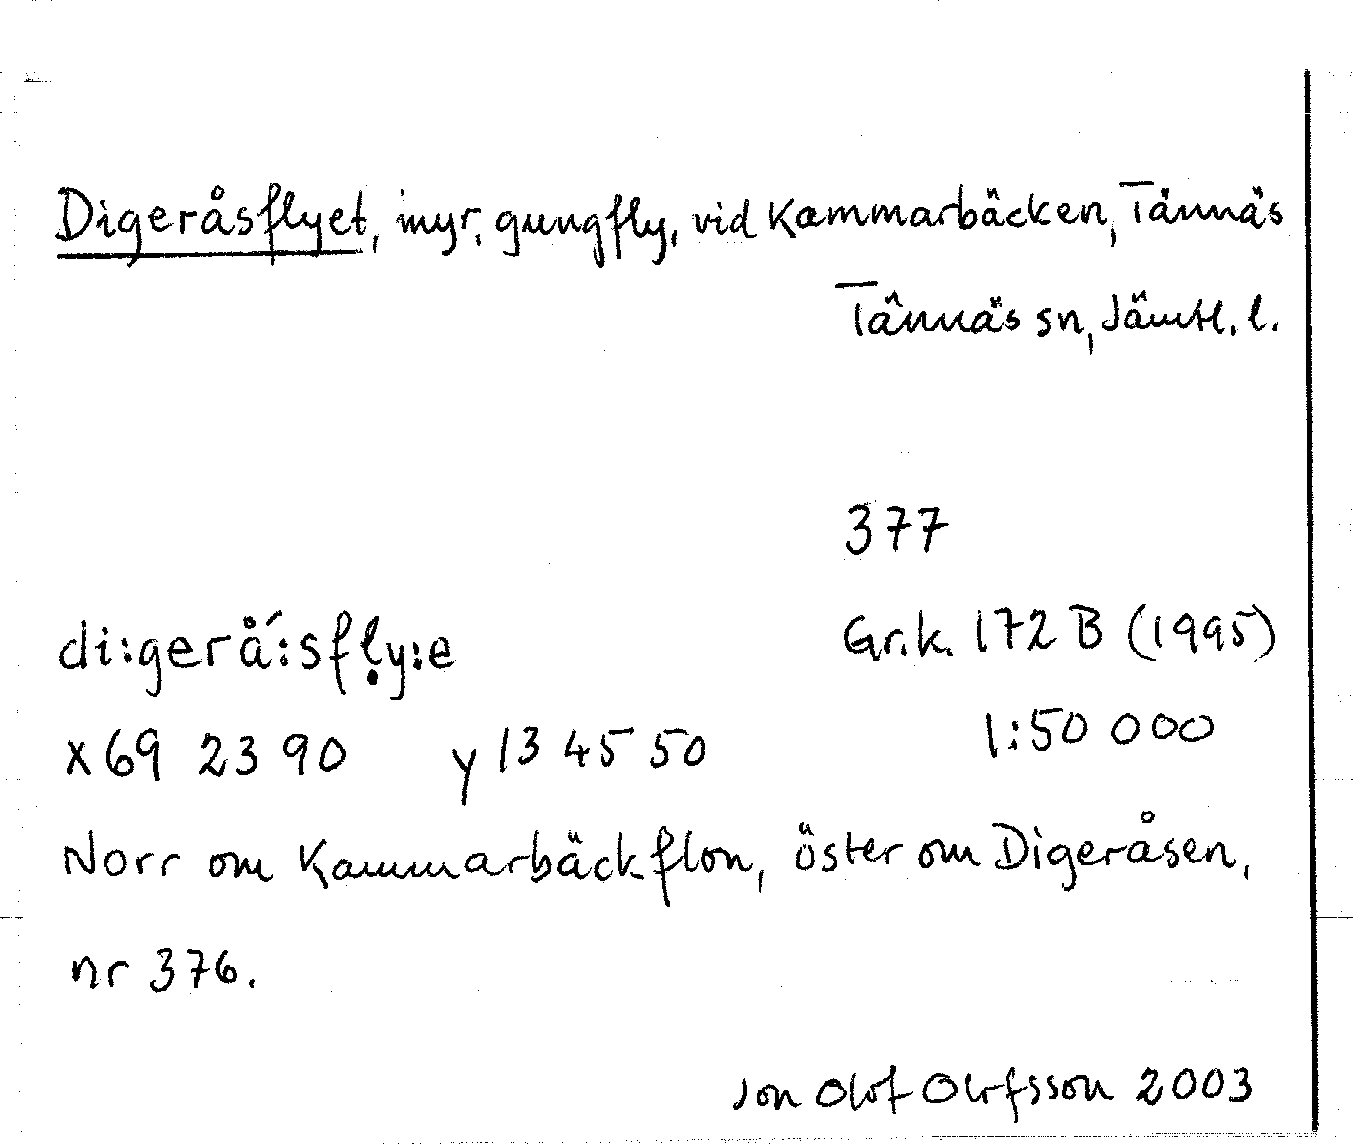 Digeråsflyet, myr, gungfly, vid Kammarbäcken, Tännäs
Tännäs sn, Jämtl. l.
377
di:gerå´:sfḷy:e
Gr.k. 172 B (1995)
x 69 23 90 y 13 45 50
1:50 000
Norr om Kammarbäckflon, öster om Digeråsen,
nr 376.
Jon Olof Olofsson 2003